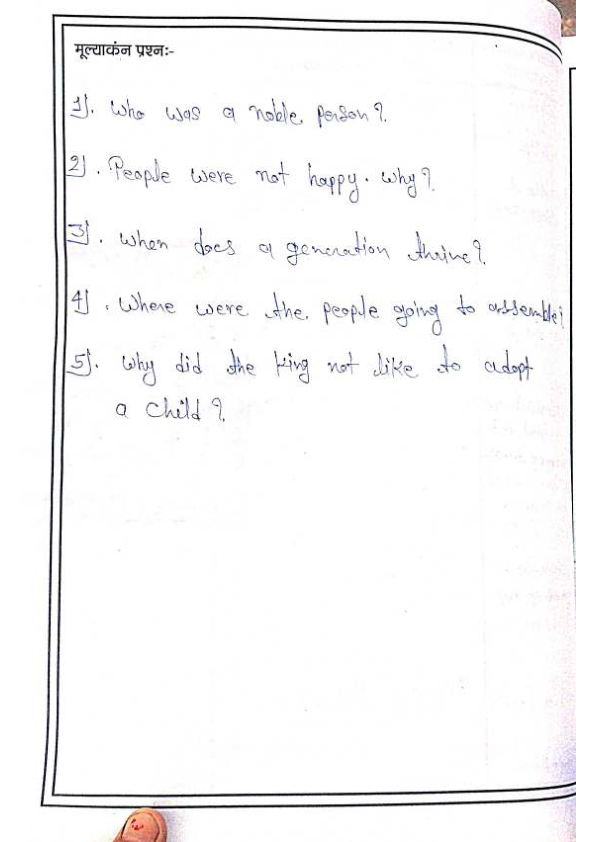 मूल्याकंन प्रश्नः-
1). Who was a noble person?
2). People were not happy. Why?
3). When does a generation thrive?
4). Where were the people going to assemble?
5). Why did the king not like to adopt
a child?